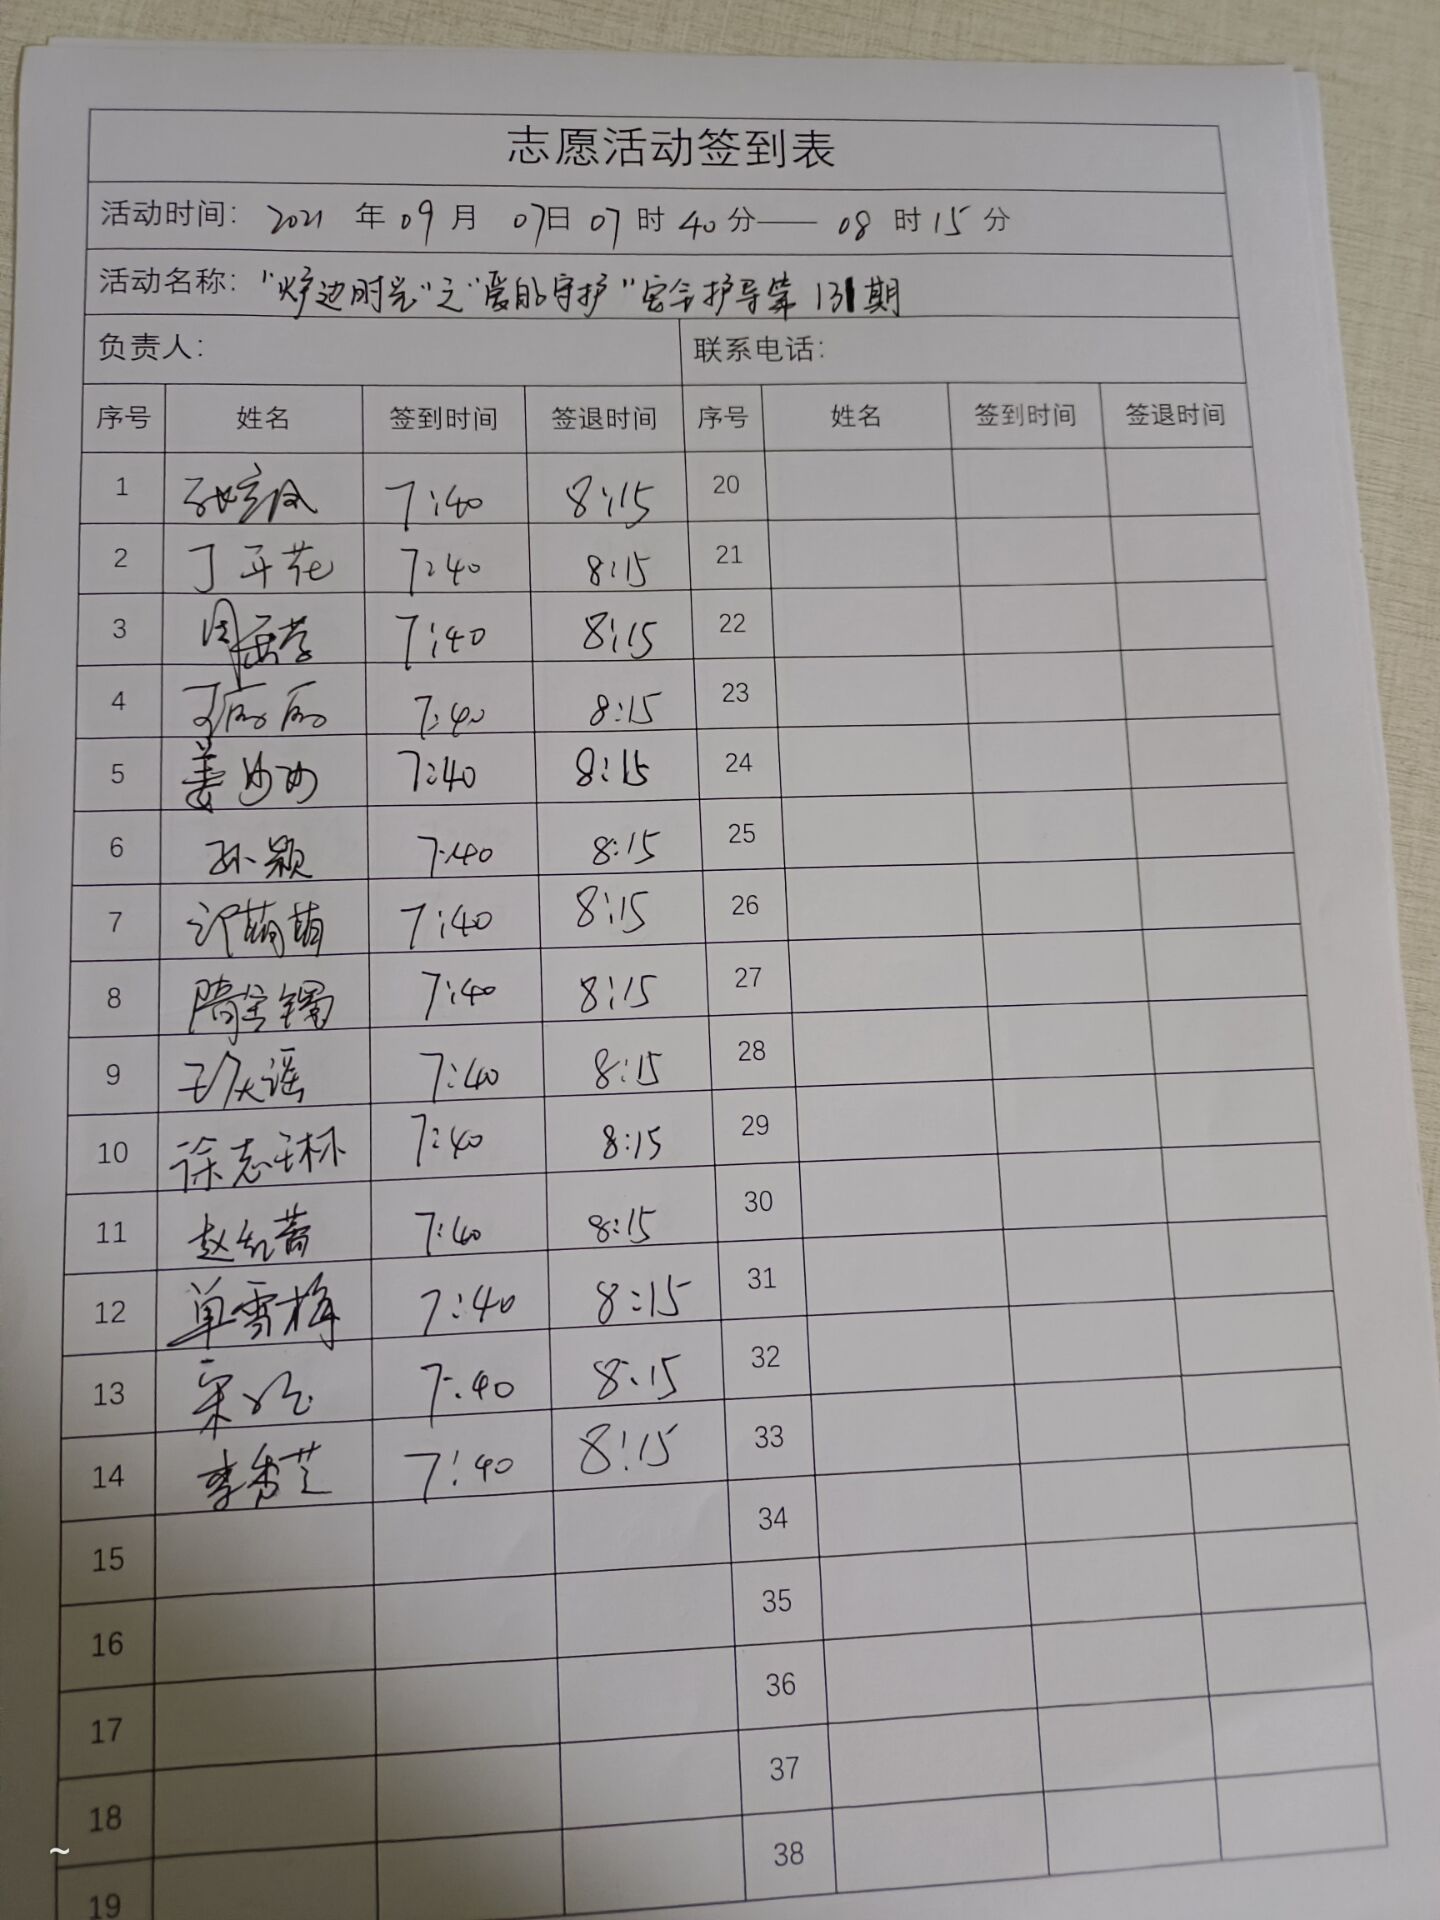 志愿活动签到表
活动时间: 2021 年 09 月 07日 07 时 40 分—— 08 时 15 分
活动名称: "炉边时光"之"爱的守护"安全护导第 131期
负责人: 联系电话:
序号 姓名 签到时间 签退时间 序号 姓名 签到时间 签退时间
1 7:40 8:15 20
2 丁开花 7:40 8:15 21
3 7:40 8:15 22
4 丁丽丽 7:40 8:15 23
5 姜 7:40 8:15 24
6 孙颖 7:40 8:15 25
7 萌萌 7:40 8:15 26
8 隋金镯 7:40 8:15 27
9 王欣谣 7:40 8:15 28
10 徐志琳 7:40 8:15 29
11 赵红蕾 7:40 8:15 30
12 单雪梅 7:40 8:15 31
13 宋 7:40 8:15 32
14 李秀芝 7:40 8:15 33
15 34
16 35
17 36
18 37
19 38
~